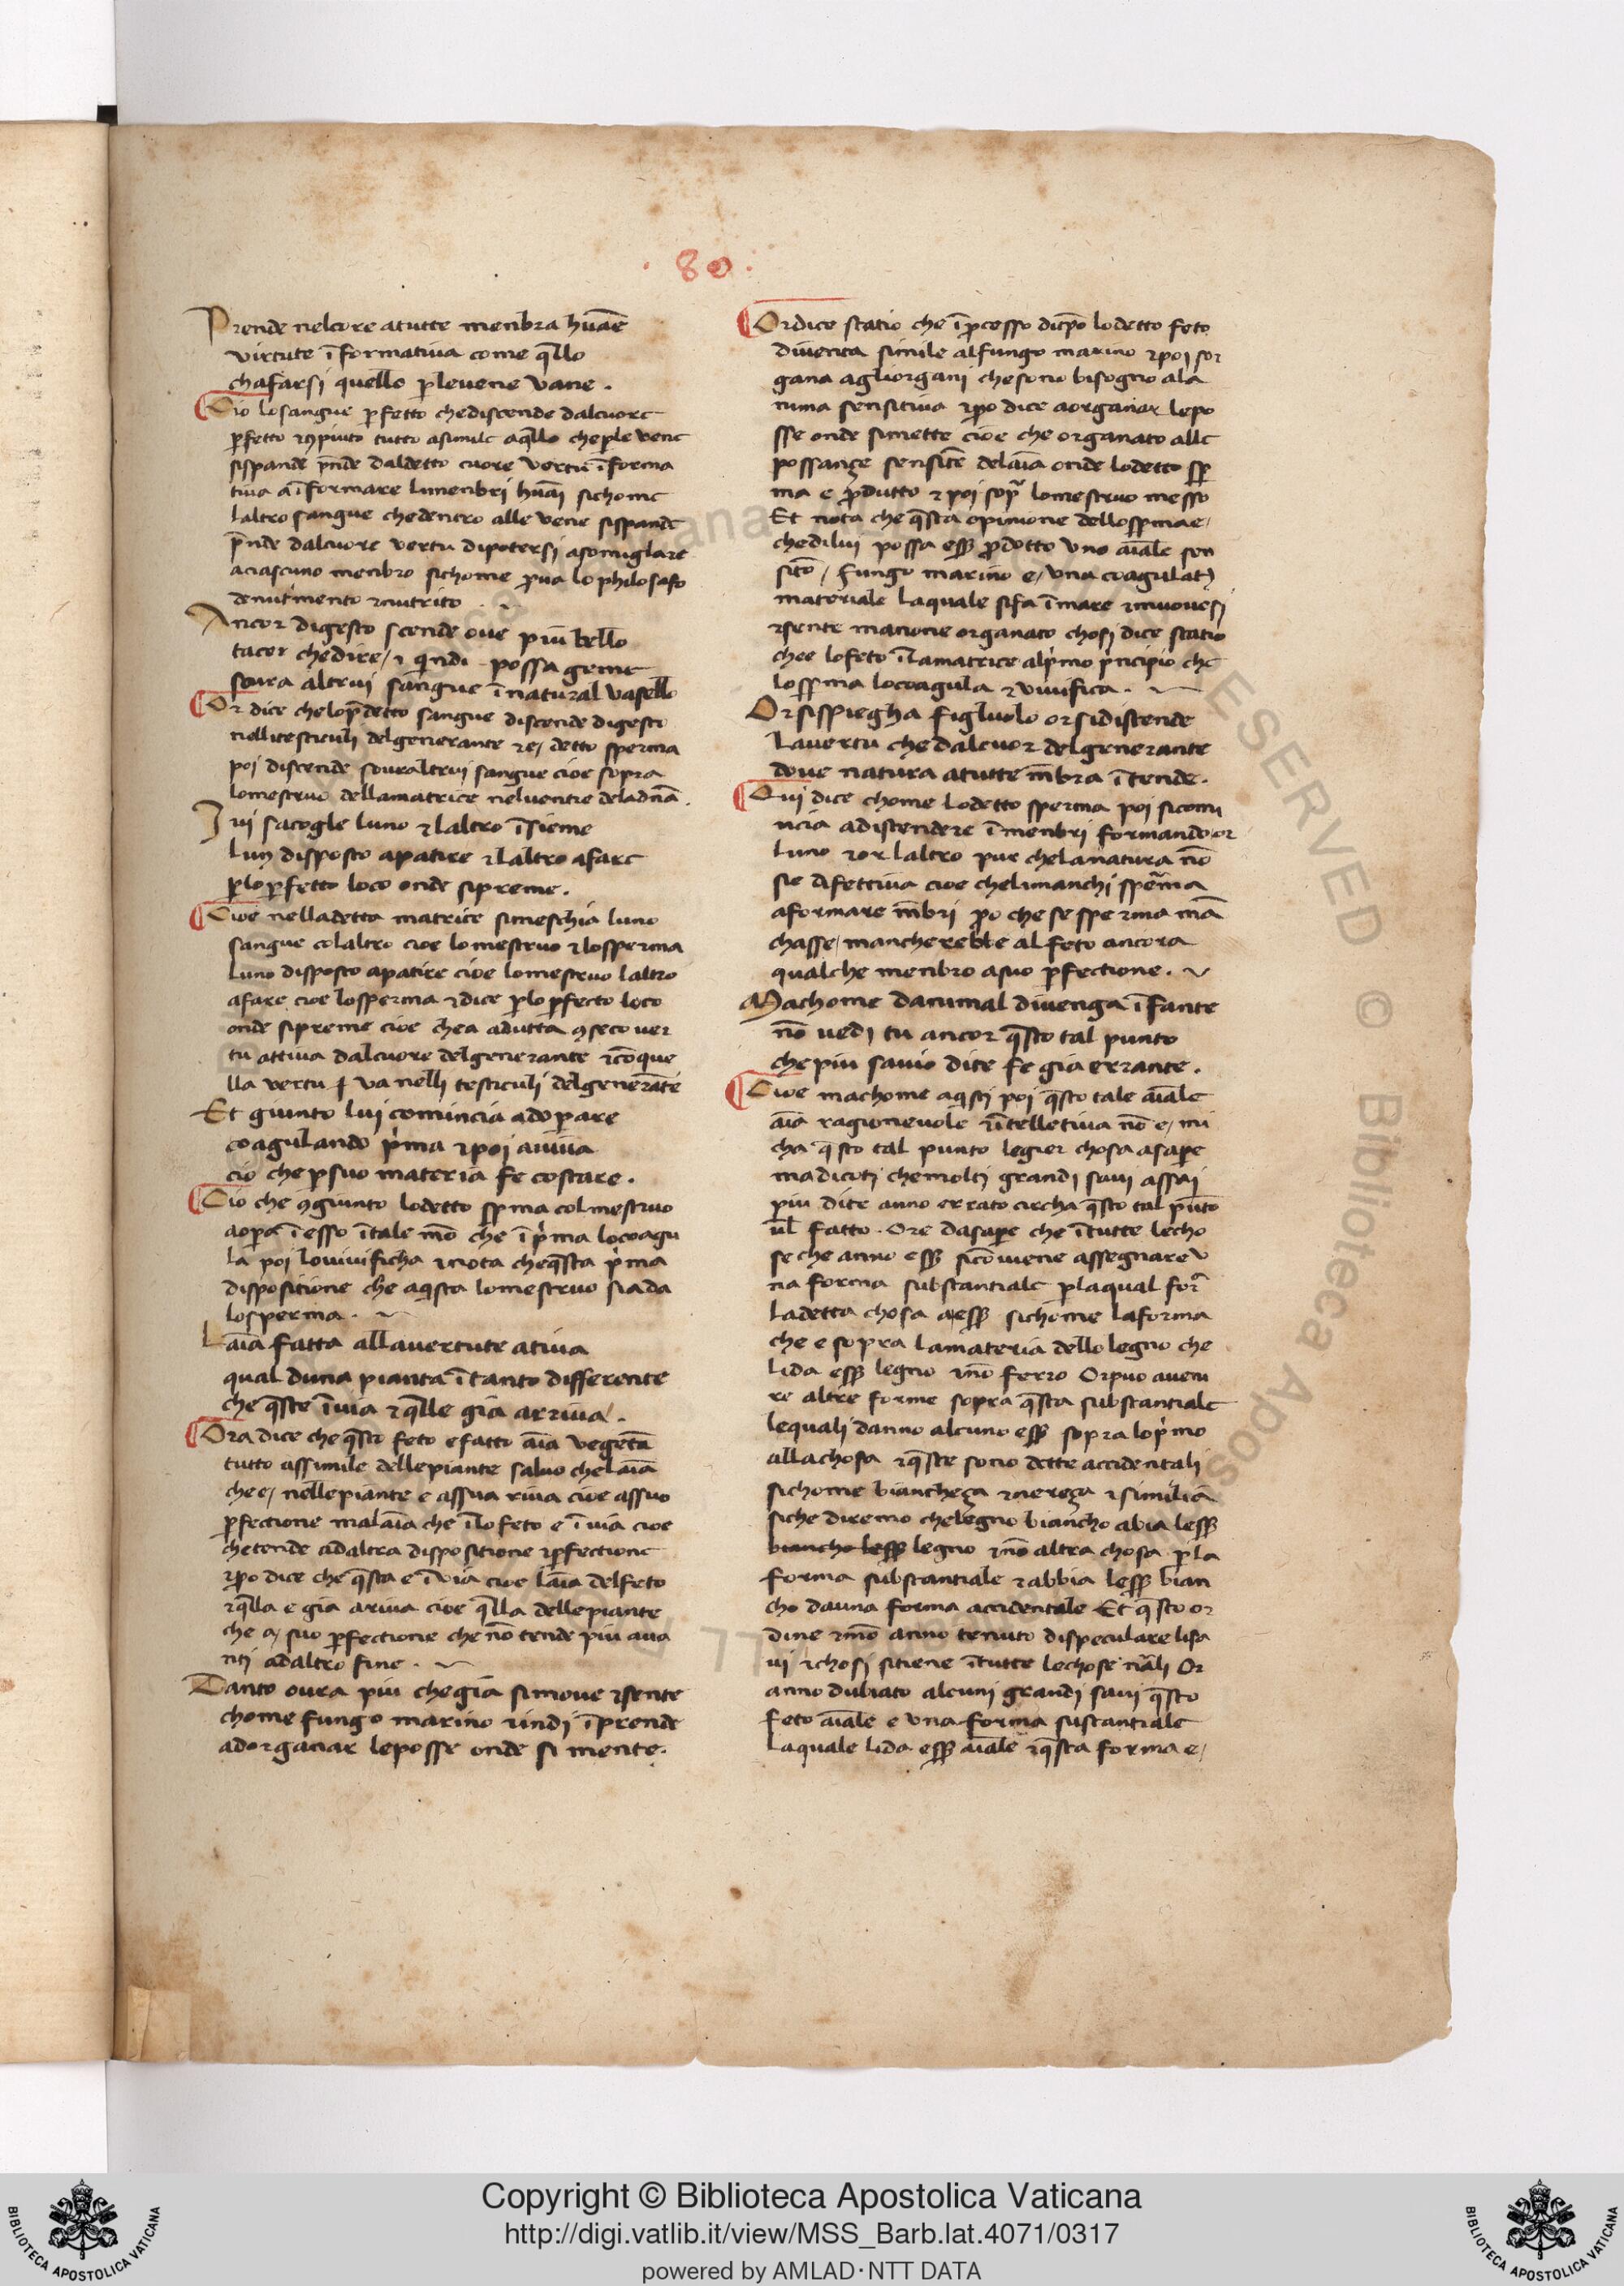 · 80 ·
Prende nelcore atutte menbra huãe
virtute ĩformativa come q̃llo
chafarsi quello p̱levene vane .
Cio losangue p̱fetto chediscende dalcuore
p̱fetto ꝛ ꝯpiuto tutto asimile aq̃llo chep̱le vene
sispande p̃nde daldetto cuore vertu ĩforma
tiva a ĩformare limenbri huãi sichome
laltro sangue chedentro alle vene sispande
p̃nde dalcuore vertu dipotersi asomiglare
aciascuno menbro sichome p̱va lo philosafo
denutrimento ꝛnutrito
Ancor digesto scende ove piu bello
tacer chedire / ꝛ quĩdi possa geme
sovra altrui sangue ĩnatural vasello
Or dice chelop̃detto sangue discende digesto
nellitesticuli delgenerante ꝛe / detto sperma
poi discende sovraltrui sangue cioe sopra
lomestruo dellamatrice nelventre deladõna .
Ivi sacogle luno ꝛ laltro ĩsieme
lun disposto apatire ꝛ laltro afare
p̱lop̱fetto loco onde sipreme .
Cioe nelladetta matrice simeschia luno
sangue colaltro cioe lomestruo ꝛ losperma
luno disposto apatire cioe lomestruo laltro
afare cioe losperma ꝛ dice p̱lo p̱fecto loco
onde sipreme cioe chea adutta ꝯseco ver
tu attiva dalcuore delgenerante ꝛcõque
lla vertu va nelli testiculi delgenerãte
Et giunto lui comincia adop̱are
coagulando p̓ma ꝛ poi aviva
cio che p̱suo materia fe costare .
Cio che ꝯgiunto lodetto sp̱ma colmestruo
aop̱a ĩ esso ĩtale mõ che ĩ p̓ma locoagu
la poi lovivificha ꝛnota cheq̃sta p̓ma
dispositione che aq̃sta lomestruo siada
losperma .
Lãia fatta allavertute ativa
qual duna pianta ĩtanto differente
che q̃ste ĩvia ꝛ q̃lle gia arriva .
Ora dice che q̃sto feto efatto ãia vegetã
tutto assimile dellepiante salvo chelãia
che e / nellepiante e assua riva cioe assuo
p̱fectione malãia che ĩlo feto e ĩvia cioe
chetende adaltra dispositione ꝛp̱fectione
ꝛp̱o dice che q̃sta e ĩvia cioe lãia delfeto
ꝛq̃lla e gia ariva cioe q̃lla dellepiante
che a / suo p̱fectione che nõ tende piu ava
nti adaltro fine .
Tanto ovra piu chegia simove ꝛsente
chome fungo marino ꝛindi ĩprende
adorganar leposse onde si mente .
Or dice statio che ĩ p̱cesso ditp̃o lodetto feto
diventa simile alfungo marino ꝛpoi sor
gana agliorgani chesono bisogno ala
nima sensitiva ꝛp̱o dice aorganar lepo
sse onde simette cioe che organato alle
possançe sensitẽ delãia onde lodetto sp̱
ma e p̱dutto ꝛ poi sop̃ lomestruo messo
Et nota che q̃sta opinione dellosp̱mae /
chedilui possa ess̱ p̱dotto uno ãiale sen
sitõ / fungo marino e / una coagulatõ
materiale laquale sifa ĩmare ꝛmuovesi
ꝛsente macione organato chosi dice statio
chee lofeto ĩlamatrice alp̓mo p̓ncipio che
losp̱ma locoagula ꝛ vivifica .
Or sispiegha figluolo or sidistende
lavertu che dalcuor del generante
dove natura atutte mẽbra ĩtende .
Qui dice chome lodetto sperma poi sicomi
ncia adistendere ĩ menbri formando or
luno ꝛor laltro pur chelanatura nõ
sie difettiva cioe chelimanchi sperma
aformare mẽbri p̱o che se sperma mã
chasse / mancherebbe al feto ancora
qualche menbro asuo p̱fectione .
Machome danimal divenga ĩfante
nõ vedi tu ancor q̃sto tal punto
che piu savio dite fe gia errante .
Cioe machome aq̃sti poi q̃sto tale ãiale
ãia ragionevole ꝛĩtelletiva nõ e / mi
cha q̃sto tal punto legier chosa asap̱e
madicoti chemolti grandi savi assai
piu dite anno errato circha q̃sto tal pũto
ṽl fatto . Ore dasap̱e che ĩtutte lecho
se che anno ess̱ sicõviene assegnare u
na forma substantiale p̱laqual for̃
ladetta chosa aess̱ sichome laforma
che e sopra lamateria dello legno che
lida ess̱ legno ꝛnõ ferro Or puo aveni
re altre forme sopra q̃sta substantiale
lequali danno alcuno ess̱ sopra lop̓mo
allachosa ꝛq̃ste sono dette accidentali
sichome bianchega ꝛnerega ꝛ similia
siche diremo chelegno biancho abia less̱
biancho less̱ legno ꝛnõ altra chosa p̱la
forma substantiale ꝛabbia less̱ bian
cho dauna forma accidentale Et q̃sto or
dine ꝛmõ anno tenuto dispeculare lisa
vi ꝛchosi sitiene ĩtutte lechose nãli Or
anno dubiato alcuni grandi savi q̃sto
feto ãiale e una forma sustantiale
laquale lida ess̱ ãiale ꝛq̃sta forma e /
Copyright © Biblioteca Apostolica Vaticana
http://digi.vatlib.it/view/MSS_Barb.lat.4071/0317
powered by AMLAD·NTT DATA
BIBLIOTECA APOSTOLICA VATICANA
BIBLIOTECA APOSTOLICA VATICANA